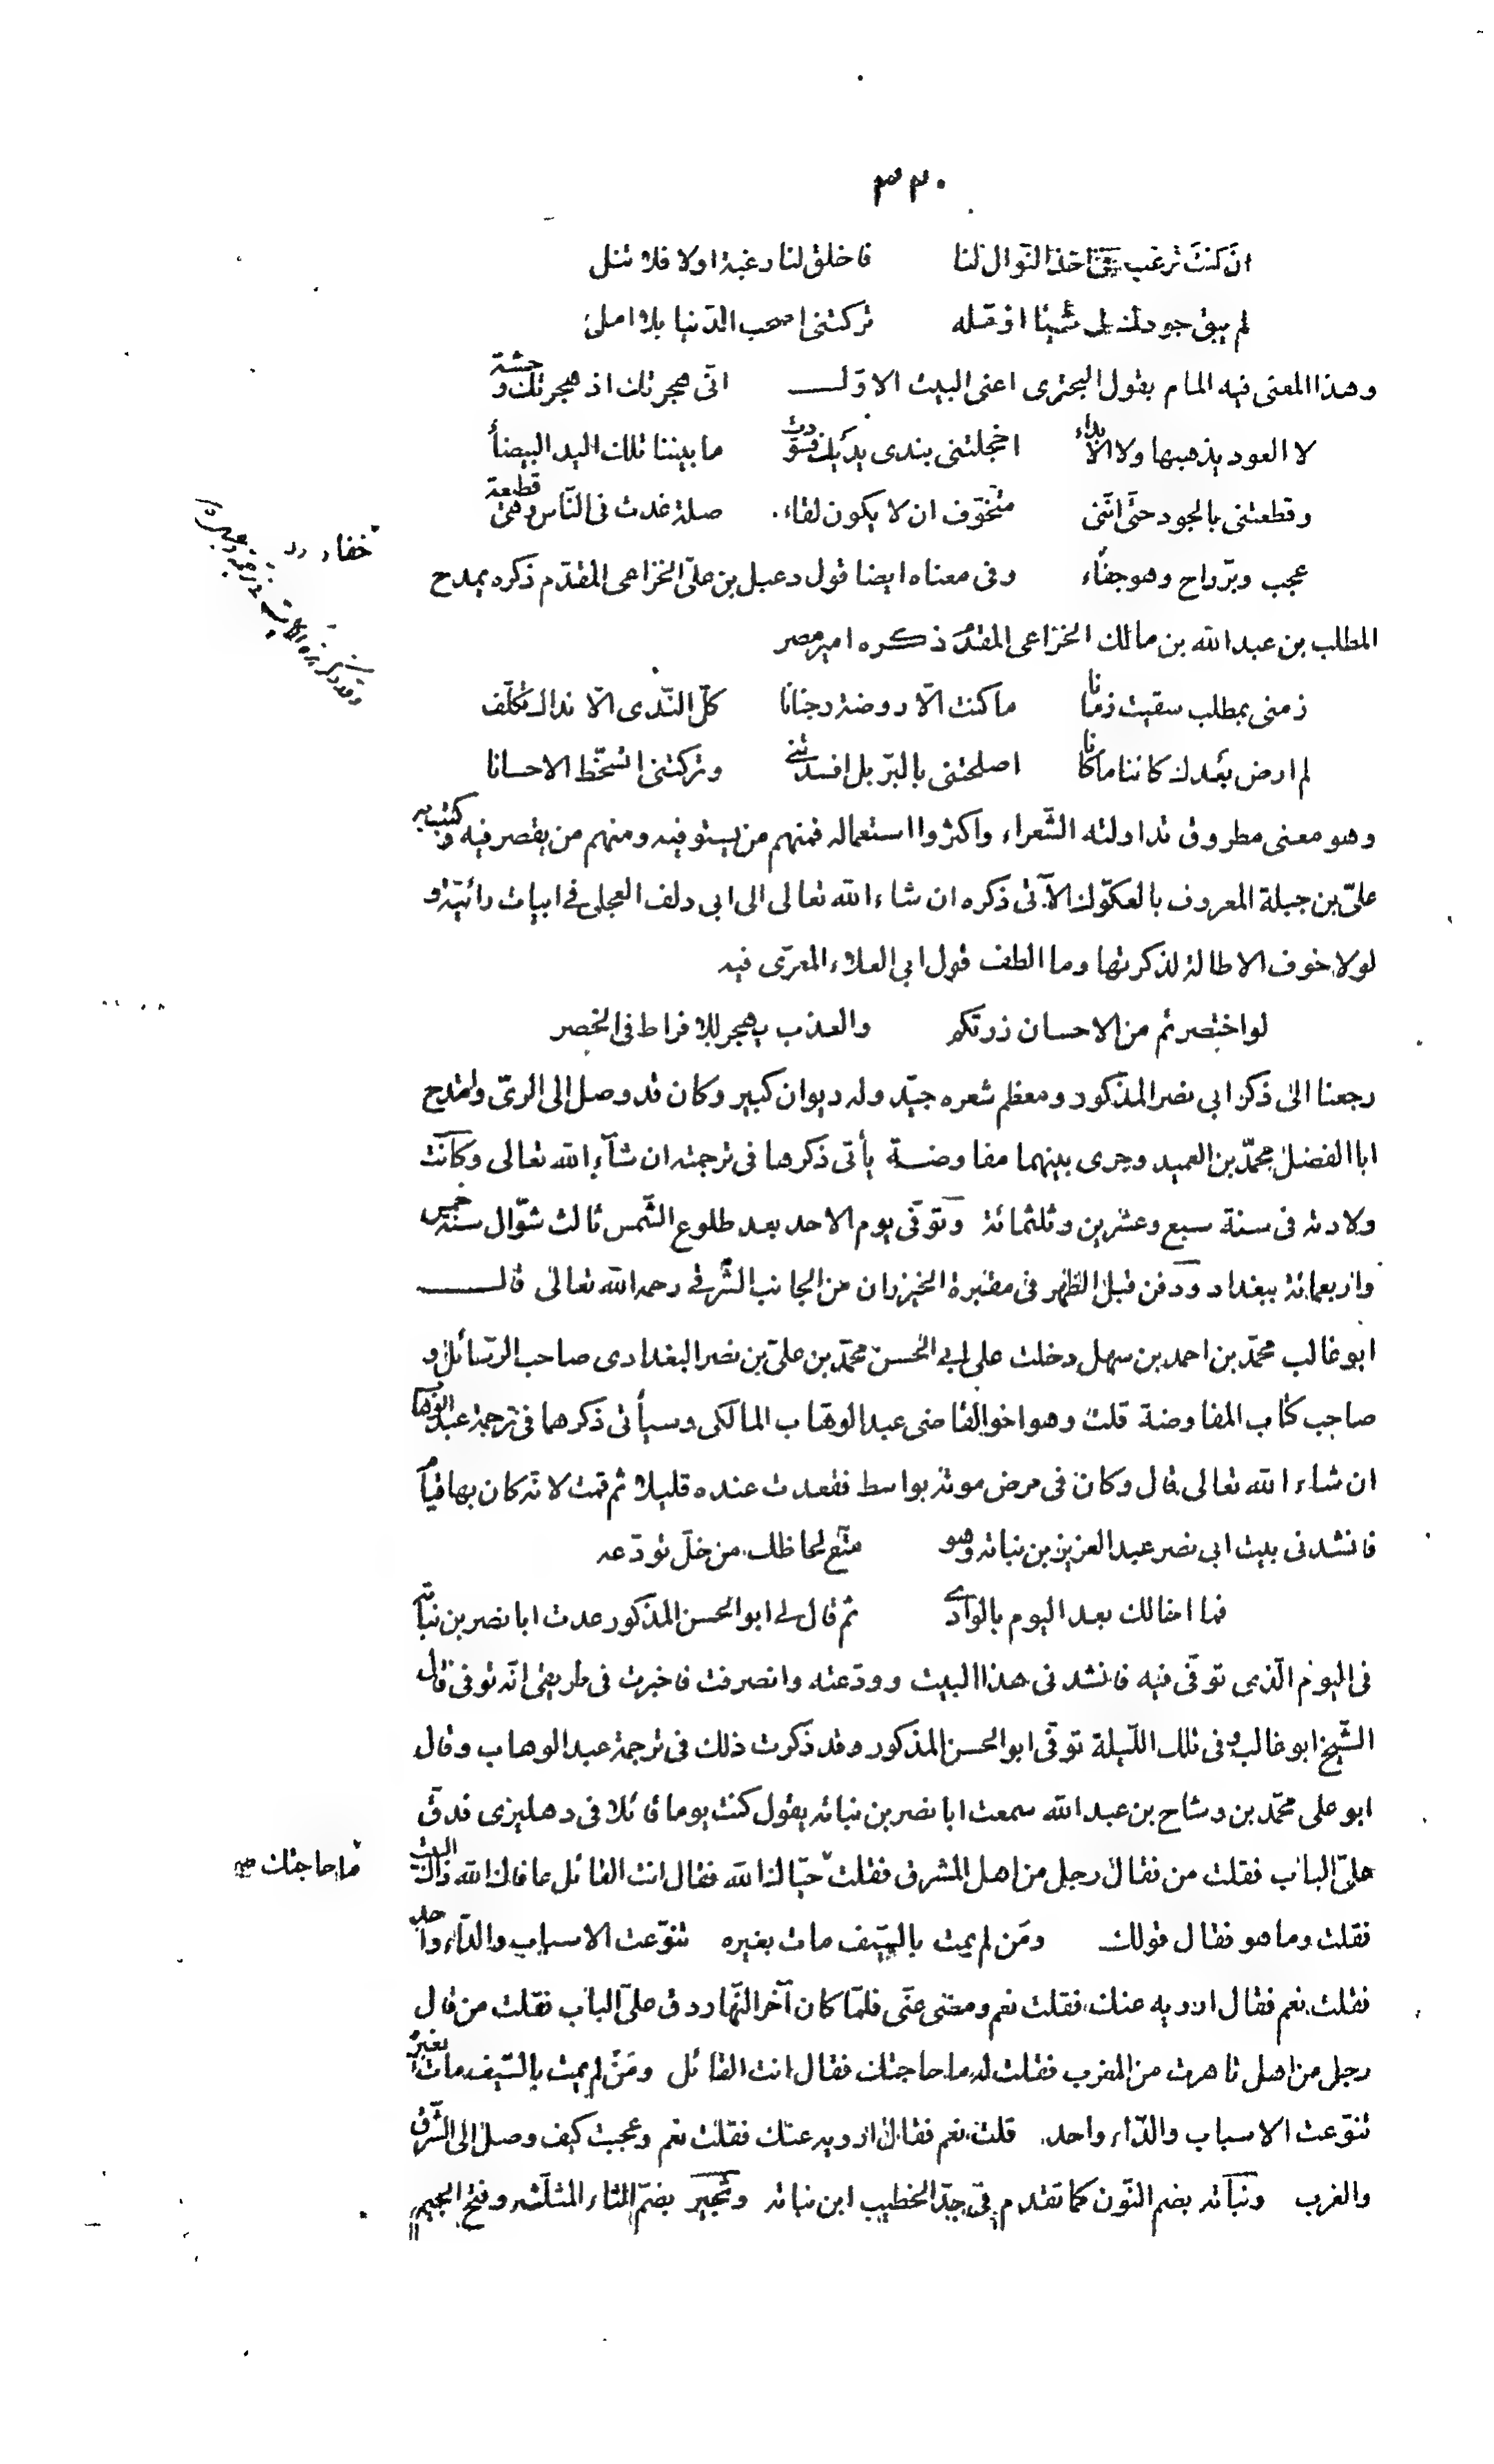 ٣٢٠
ان كنت ترغب فى اخذ النّوال لنا فاخلق لنا رغبة اولا فلا تنل
لم يبق جودك لى شيئا اؤمّله تركتنى اصحب الدّنيا بلا امل
وهذا المعنى فيه المام بقول البحترى اعنى البيت الاوّل انّى هجرتك اذ هجرتك وحشة
لا العود يذهبها ولا الابداء اخجلتنى بندى يديك فسوّدت ما بيننا تلك اليد البيضأ
وقطعتنى بالجود حتّى انّنى متخوّف ان لا يكون لقاء صلة غدت فى النّاس وهى قطيعة
عجب وبرّ راح وهو جفاء وفى معناه ايضا قول دعبل بن علىّ الخزاعى المقدّم ذكره يمدح
المطلب بن عبد الله بن مالك الخزاعى المقدّم ذكره امير مصر
زمنى بمطلب سقيت زمانا ما كنت الّا روضة وجنانا كلّ النّدى الّا نداك تكلّف
لم ارض بعدك كائنا ما كانا اصلحتنى بالبرّ بل افسدتنى وتركتنى اتسخّط الاحسانا
وهو معنى مطروق تداولته الشّعراء واكثروا استعماله فمنهم من يستوفيه ومنهم من يقصر فيه وكتب به
علىّ بن جبلة المعروف بالعكوّك الآتى ذكره ان شاء الله تعالى الى ابى دلف العجلى فى ابيات رائيّة و
لولا خوف الاطالة لذكرتها وما الطف قول ابى العلاء المعرّى فيه
لو اختصرتم من الاحسان زرتكم والعذب يهجر للافراط فى الخصر
رجعنا الى ذكر ابى نصر المذكور ومعظم شعره جيّد وله ديوان كبير وكان قد وصل الى الرىّ وامتدح
ابا الفضل محمّد بن العميد وجرى بينهما مفاوضة يأتى ذكرها فى ترجمته ان شآء الله تعالى وكانت
ولادته فى سنة سبع وعشرين وثلثمائة وتوفّى يوم الاحد بعد طلوع الشّمس ثالث شوّال سنة خمس
واربعمائة ببغداد ودفن قبل الظهر فى مقبرة الخيزران من الجانب الشّرقى رحمه الله تعالى قال
ابو غالب محمّد بن احمد بن سهل دخلت على ابى الحسن محمّد بن علىّ بن نصر البغدادى صاحب الرّسائل و
صاحب كتاب المفاوضة قلت وهو اخو القاضى عبد الوهّاب المالكى وسيأتى ذكرهما فى ترجمة عبد الوهاب
ان شاء الله تعالى قال وكان فى مرض موته بواسط فقعدت عنده قليلا ثم قمت لانّه كان به قيام
فانشدنى بيت ابى نصر عبد العزيز بن نباته وهو متّع لحاظك من خلّ تودّعه
فما اخالك بعد اليوم بالوادى ثم قال لى ابو الحسن المذكور عدت ابا نصر بن نباته
فى اليوم الّذى توفّى فيه فانشدنى هذا البيت وودّعته وانصرفت فاخبرت فى طريقى انّه توفى قال
الشّيخ ابو غالب وفى تلك اللّيلة توفّى ابو الحسن المذكور وقد ذكرت ذلك فى ترجمة عبد الوهاب وقال
ابو على محمّد بن وشاح بن عبد الله سمعت ابا نصر بن نباته يقول كنت يوما قائلا فى دهليزى فدقّ
علىّ الباب فقلت من فقال رجل من اهل المشرق فقلت حيّاك الله فقال انت القائل عافاك الله ذاك البيت
ما حاجتك صح
فقلت وما هو فقال قولك ومن لم يمت بالسّيف مات بغيره تنوّعت الاسباب والدّاء واحد
فقلت نعم فقال ارويه عنك فقلت نعم ومضى عنّى فلمّا كان آخر النّهار دقّ علىّ الباب فقلت من قال
رجل من اهل تاهرت من المغرب فقلت له ما حاجتك فقال انت القائل ومن لم يمت بالسّيف مات بغيره
تنوّعت الاسباب والدّاء واحد قلت نعم فقال ارويه عنك فقلت نعم وعجبت كيف وصل الى الشّرق
والغرب ونباته بضم النّون كما تقدم فى جدّ الخطيب ابن نباته وثجير بضمّ الثاء المثلّثه وفتح الجيم